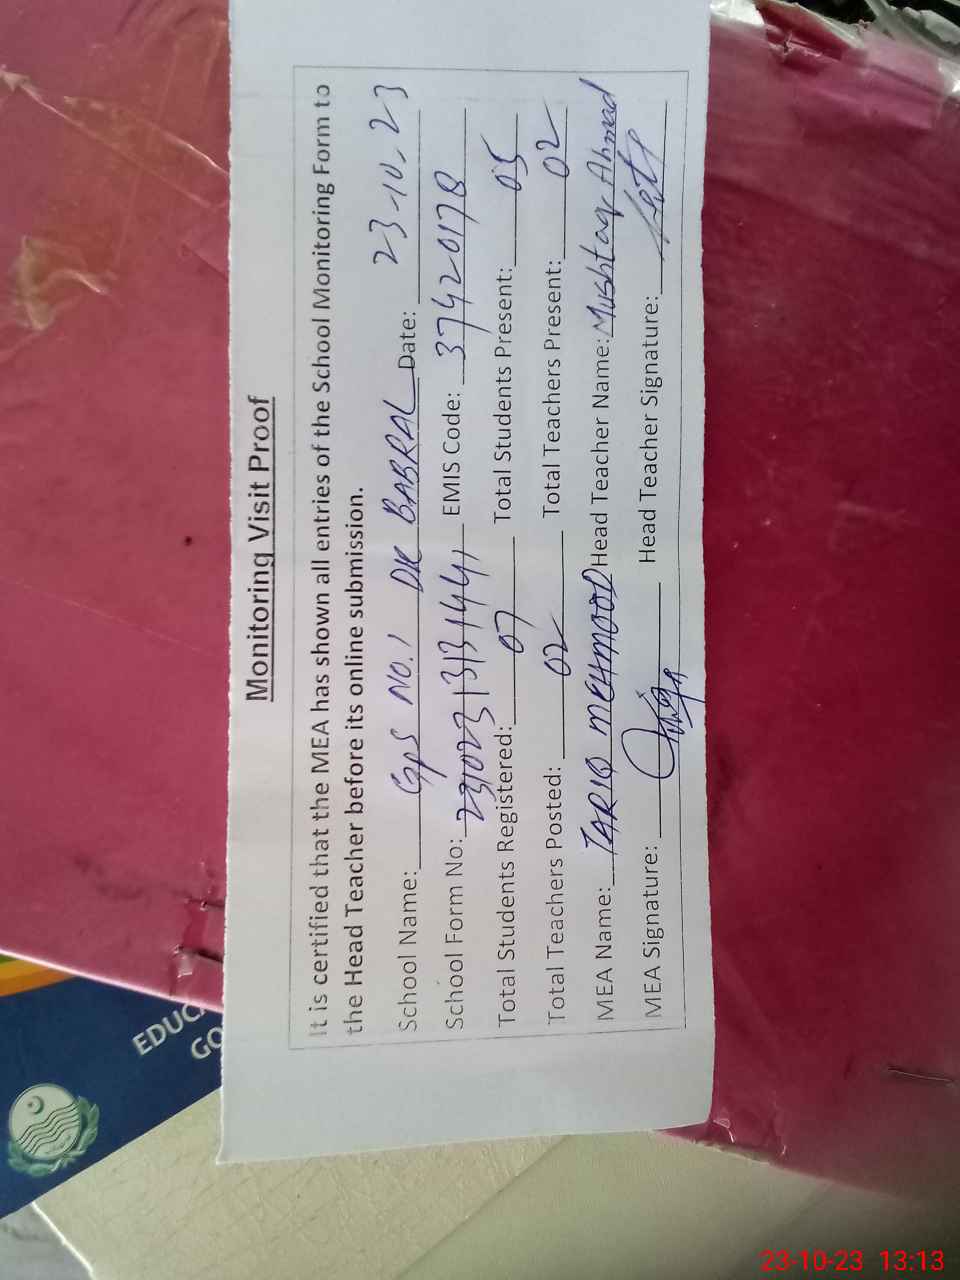 Monitoring Visit Proof
It is certified that the MEA has shown all entries of the School Monitoring Form to
the Head Teacher before its online submission.
School Name: GPS NO.1 DK BABRAL Date: 23-10.23
School Form No: EMIS Code: 37420178
Total Students Registered: 07 Total Students Present: 05
Total Teachers Posted: 02 Total Teachers Present: 02
MEA Name: TARIQ MEHMOOD Head Teacher Name: Mushtaq Ahmad
MEA Signature: Head Teacher Signature:
EDUCA
GO
23-10-23 13:13